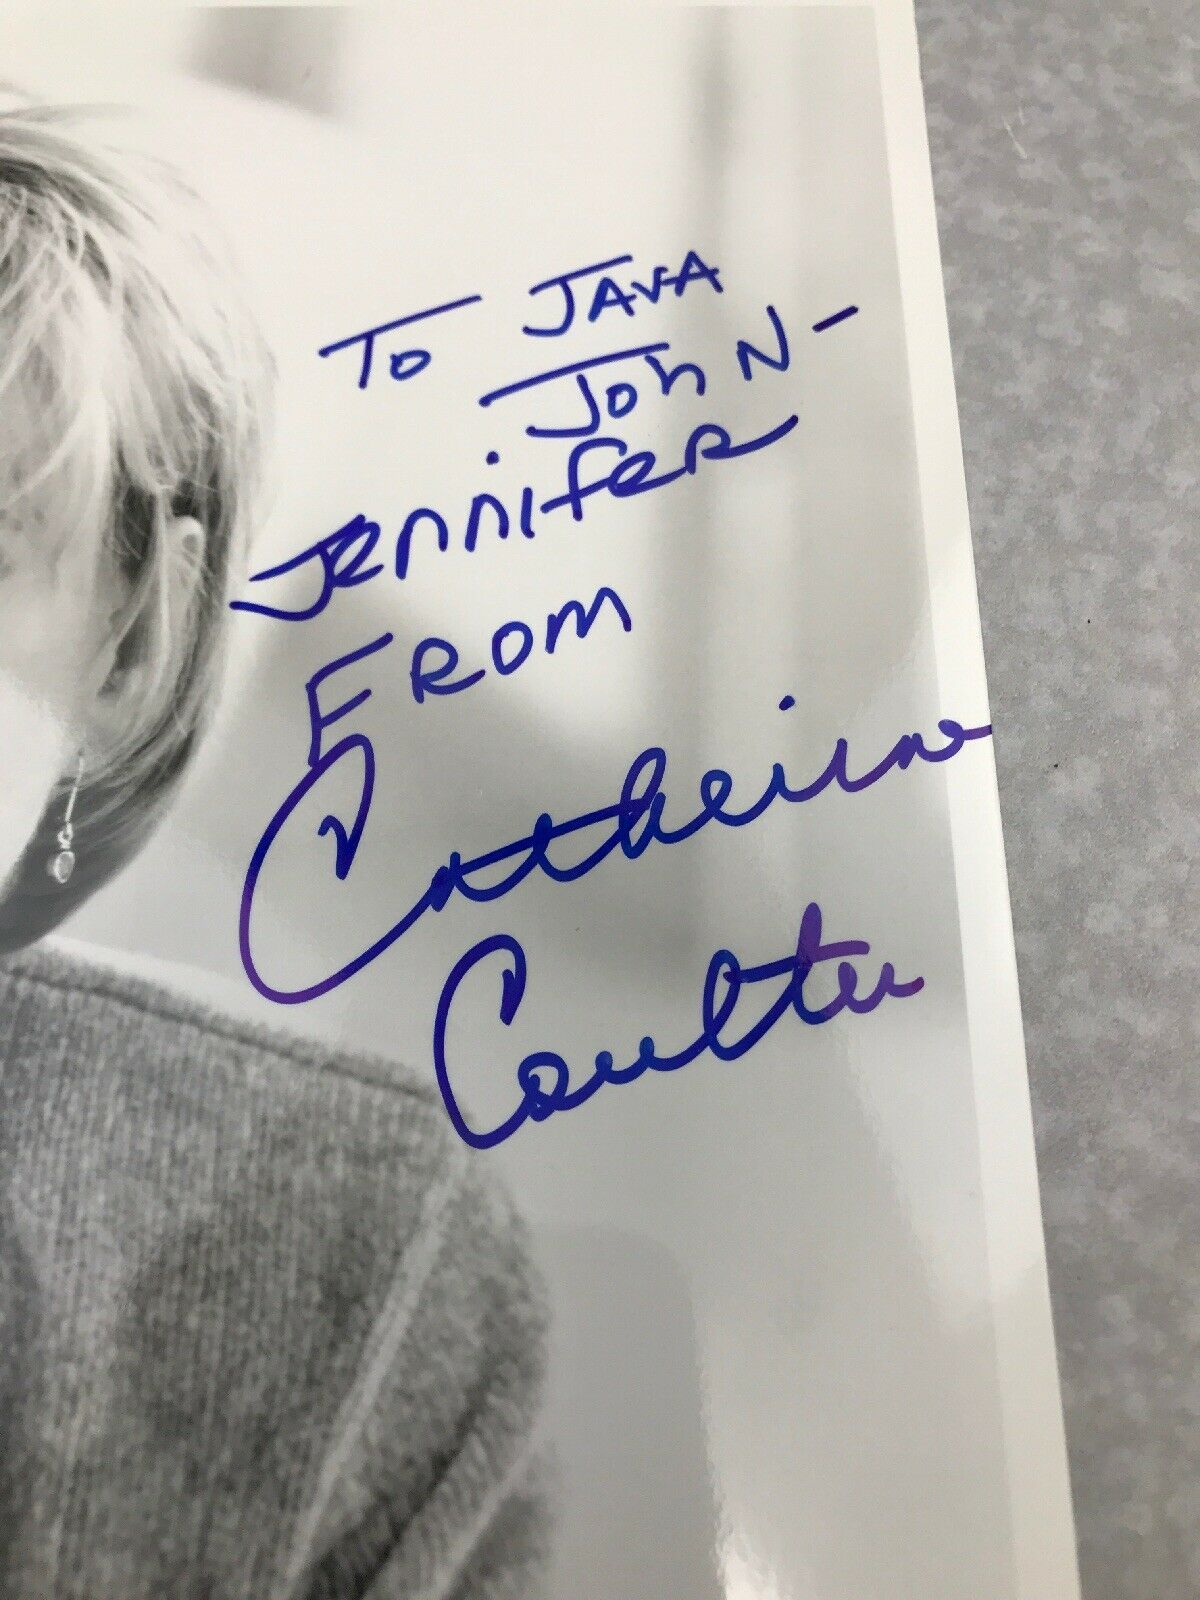 To JAVA
John -
Jennifer
From
Catherine
Coulter